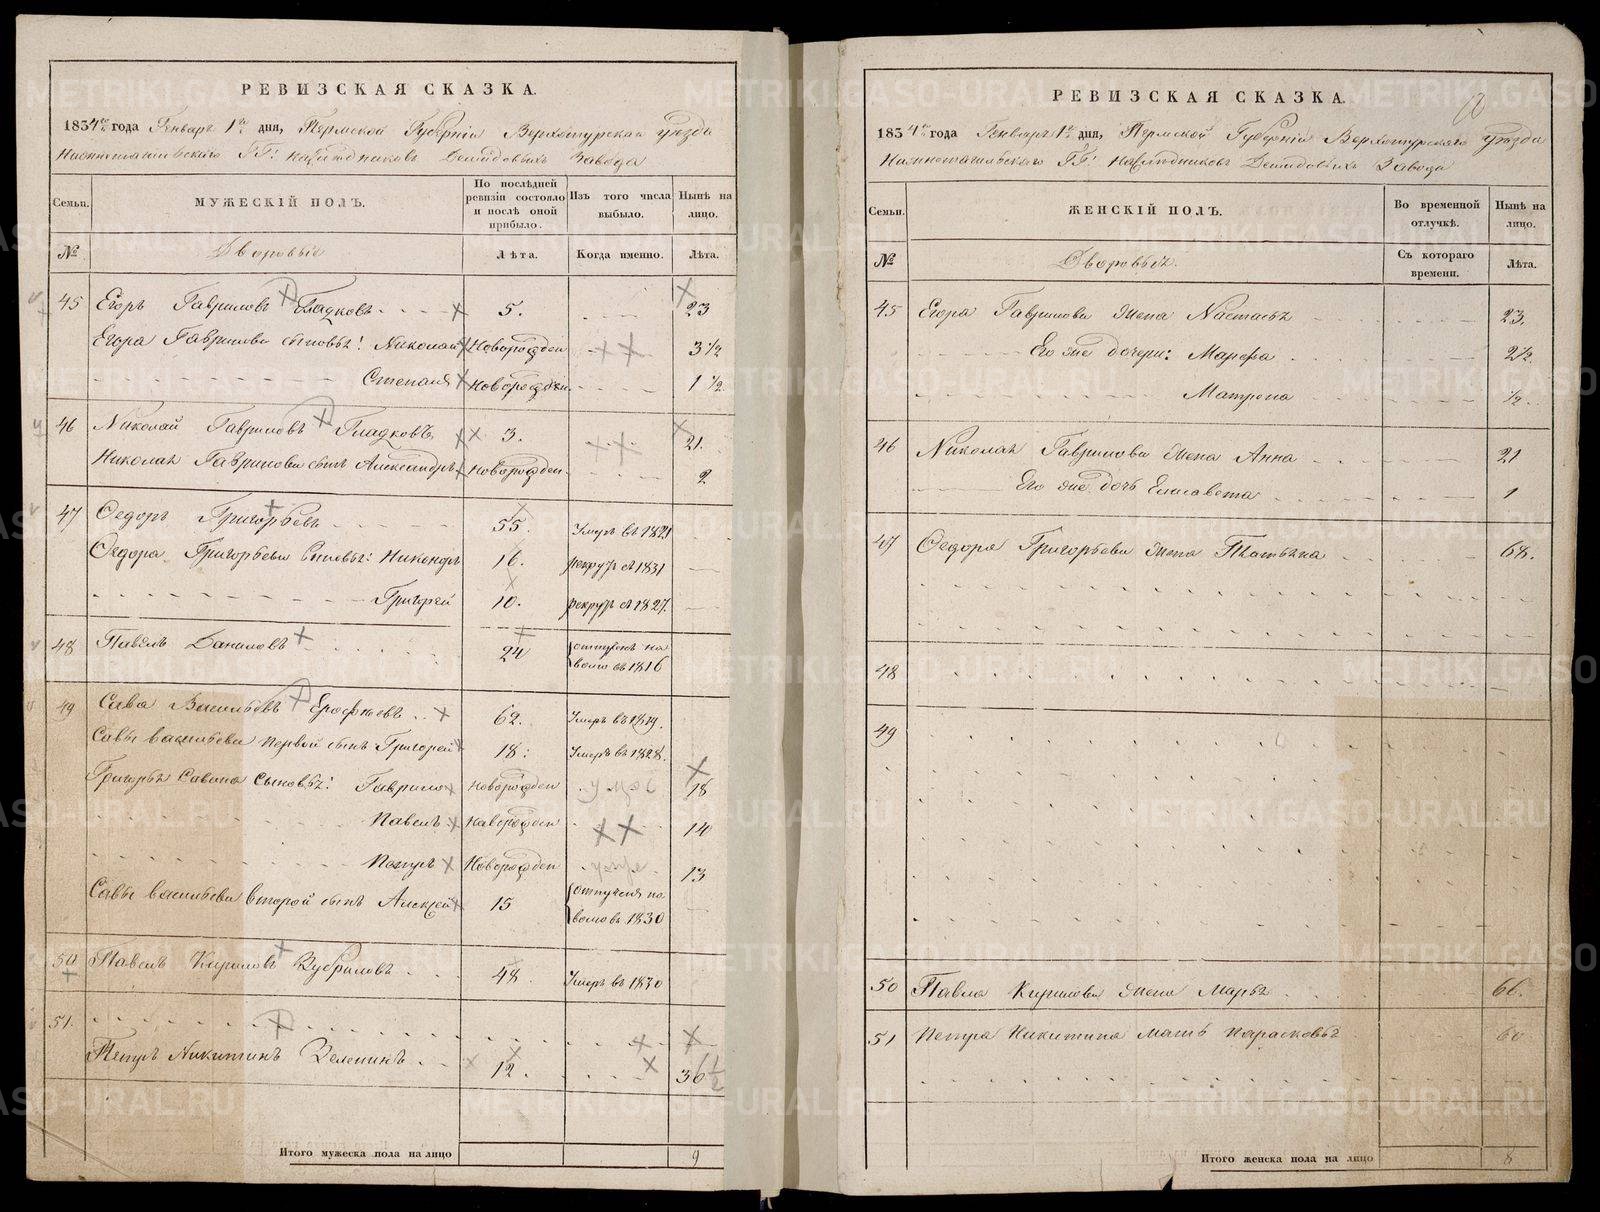 РЕВИЗСКАЯ СКАЗКА.
1834го года Генваря 1го дня, Пермской Губерніи Верхотурскаго уезда
Нижнетагильскаго ГГ: наследниковъ Демидовыхъ Завода
Семьи.
МУЖЕСКІЙ ПОЛЪ.
По послѣдней ревизіи состояло и послѣ оной прибыло.
Изъ того числа выбыло.
Нынѣ на лицо.
№
Дворовые
Лѣта.
Когда именно.
Лѣта.
45 Егоръ Гавриловъ Гладковъ 5. 23
Егора Гаврилова сыновья: Николай Новорожден 3 1/2
Степанъ Новорожден. 1 1/2
46 Николай Гавриловъ Гладковъ 3. 21.
Николая Гаврилова сынъ Александръ новорожден. 2
47 Федоръ Григорьевъ 55. Умеръ въ 1821
Федора Григорьева сыновья: Никоноръ 16. рекрутъ съ 1831
Григорей 10. рекрутъ съ 1827.
48 Павелъ Даниловъ 24 отпущенъ на
волю въ 1816
49 Сава Васильевъ Ерофѣевъ 62. Умеръ въ 1819.
Савы васильева первой сынъ Григорей 18: Умеръ въ 1828.
Григорья Савина сыновья: Гаврило Новорожден 18
Павелъ Новорожден 14
Петръ Новорожден 13
Савы васильева второй сынъ Алексей 15 отпущенъ на
волю въ 1830
50 Павелъ Кириловъ Зубриловъ 48. Умеръ въ 1830
51.
Петръ Никитинъ Зеленинъ 12. 36 1/2
Итого мужеска пола на лицо 9
10
РЕВИЗСКАЯ СКАЗКА.
1834го года Генваря 1го дня, Пермской Губерніи Верхотурскаго уезда
Нижнетагильскаго ГГ: наследниковъ Демидовыхъ Завода
Семьи.
ЖЕНСКІЙ ПОЛЪ.
Во временной отлучкѣ.
Нынѣ на лицо.
№
Дворовыхъ.
Съ котораго времени.
Лѣта.
45 Егора Гаврилова жена Настасья 23.
Его же дочери: Марфа 2 1/2.
Матрена 1/2.
46 Николая Гаврилова жена Анна 21
Его же дочь Елисавета 1
47 Федора Григорьева жена Татьяна 68.
48
49
50 Павла Кирилова жена Марья 66.
51 Петра Никитина мать Парасковья 60
Итого женска пола на лицо 8
METRIKI.GASO-URAL.RU